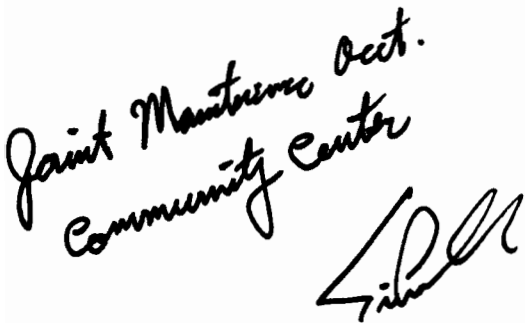 Joint Maintenance Acct.
Community Center